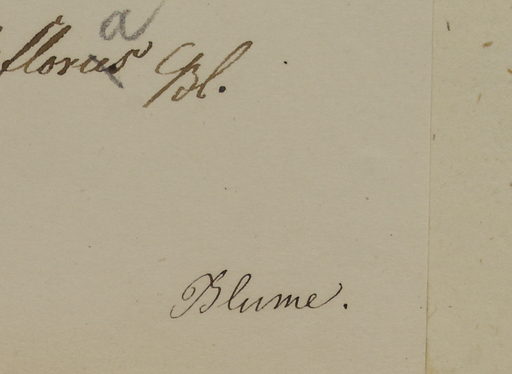 a
florus Bl.
Blume.